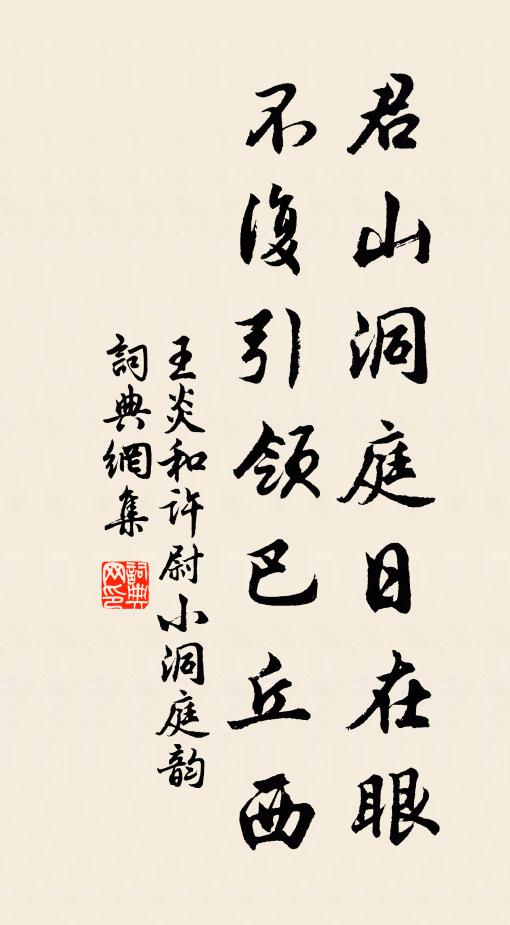 君山洞庭日在眼
不復引領巴丘西
王炎和許尉小洞庭韵
詞典網集
詞典网印